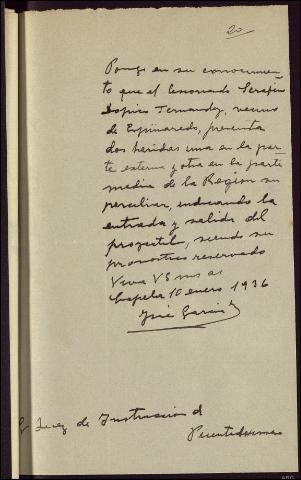 20
Pongo en su conocimien-
to que el lesionado Serafin
Lopico Fernandez, vecino
de Espiñaredo, presenta
dos heridas una en la par-
te externa y otra en la parte
media de la Region su
perciliar, indicando la
entrada y salida del
proyectil, siendo su
pronostico reservado
Viva VS ms as
Capela 10 enero 1936
José Garcia
Sr Juez de Instruccion d
Puentedeume